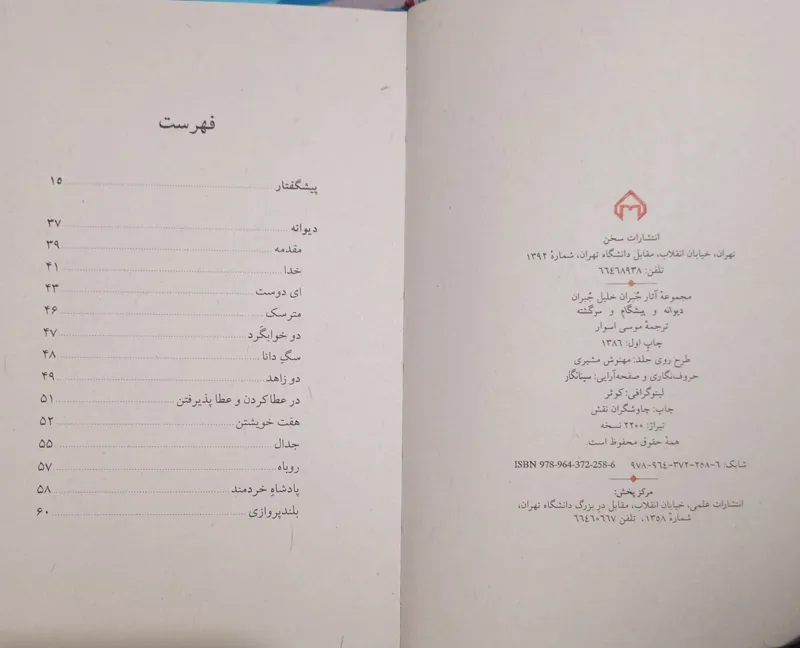 انتشارات سخن
تهران، خیابان انقلاب، مقابل دانشگاه تهران، شمارهٔ ۱۳۹۲
تلفن: ۶۶۴۶۸۹۳۸
مجموعهٔ آثار جُبران خلیل جُبران
دیوانه و پیشگام و سرگشته
ترجمهٔ موسی اسوار
چاپ اول: ۱۳۸۶
طرح روی جلد: مهنوش مشیری
حروف‌نگاری و صفحه‌آرایی: سینانگار
لیتوگرافی: کوثر
چاپ: چاوشگران نقش
تیراژ: ۲۲۰۰ نسخه
همهٔ حقوق محفوظ است.
شابک: ۶-۲۵۸-۳۷۲-۹۶۴-۹۷۸ ISBN 978-964-372-258-6
مرکز پخش:
انتشارات علمی، خیابان انقلاب، مقابل درِ بزرگ دانشگاه تهران،
شمارهٔ ۱۳۵۸، تلفن ۶۶۴۶۰۶۶۷
فهرست
پیشگفتار ۱۵
دیوانه ۳۷
مقدمه ۳۹
خدا ۴۱
ای دوست ۴۳
مترسک ۴۶
دو خوابگرد ۴۷
سگِ دانا ۴۸
دو زاهد ۴۹
در عطا کردن و عطا پذیرفتن ۵۱
هفت خویشتن ۵۲
جدال ۵۵
روباه ۵۷
پادشاهِ خردمند ۵۸
بلندپروازی ۶۰